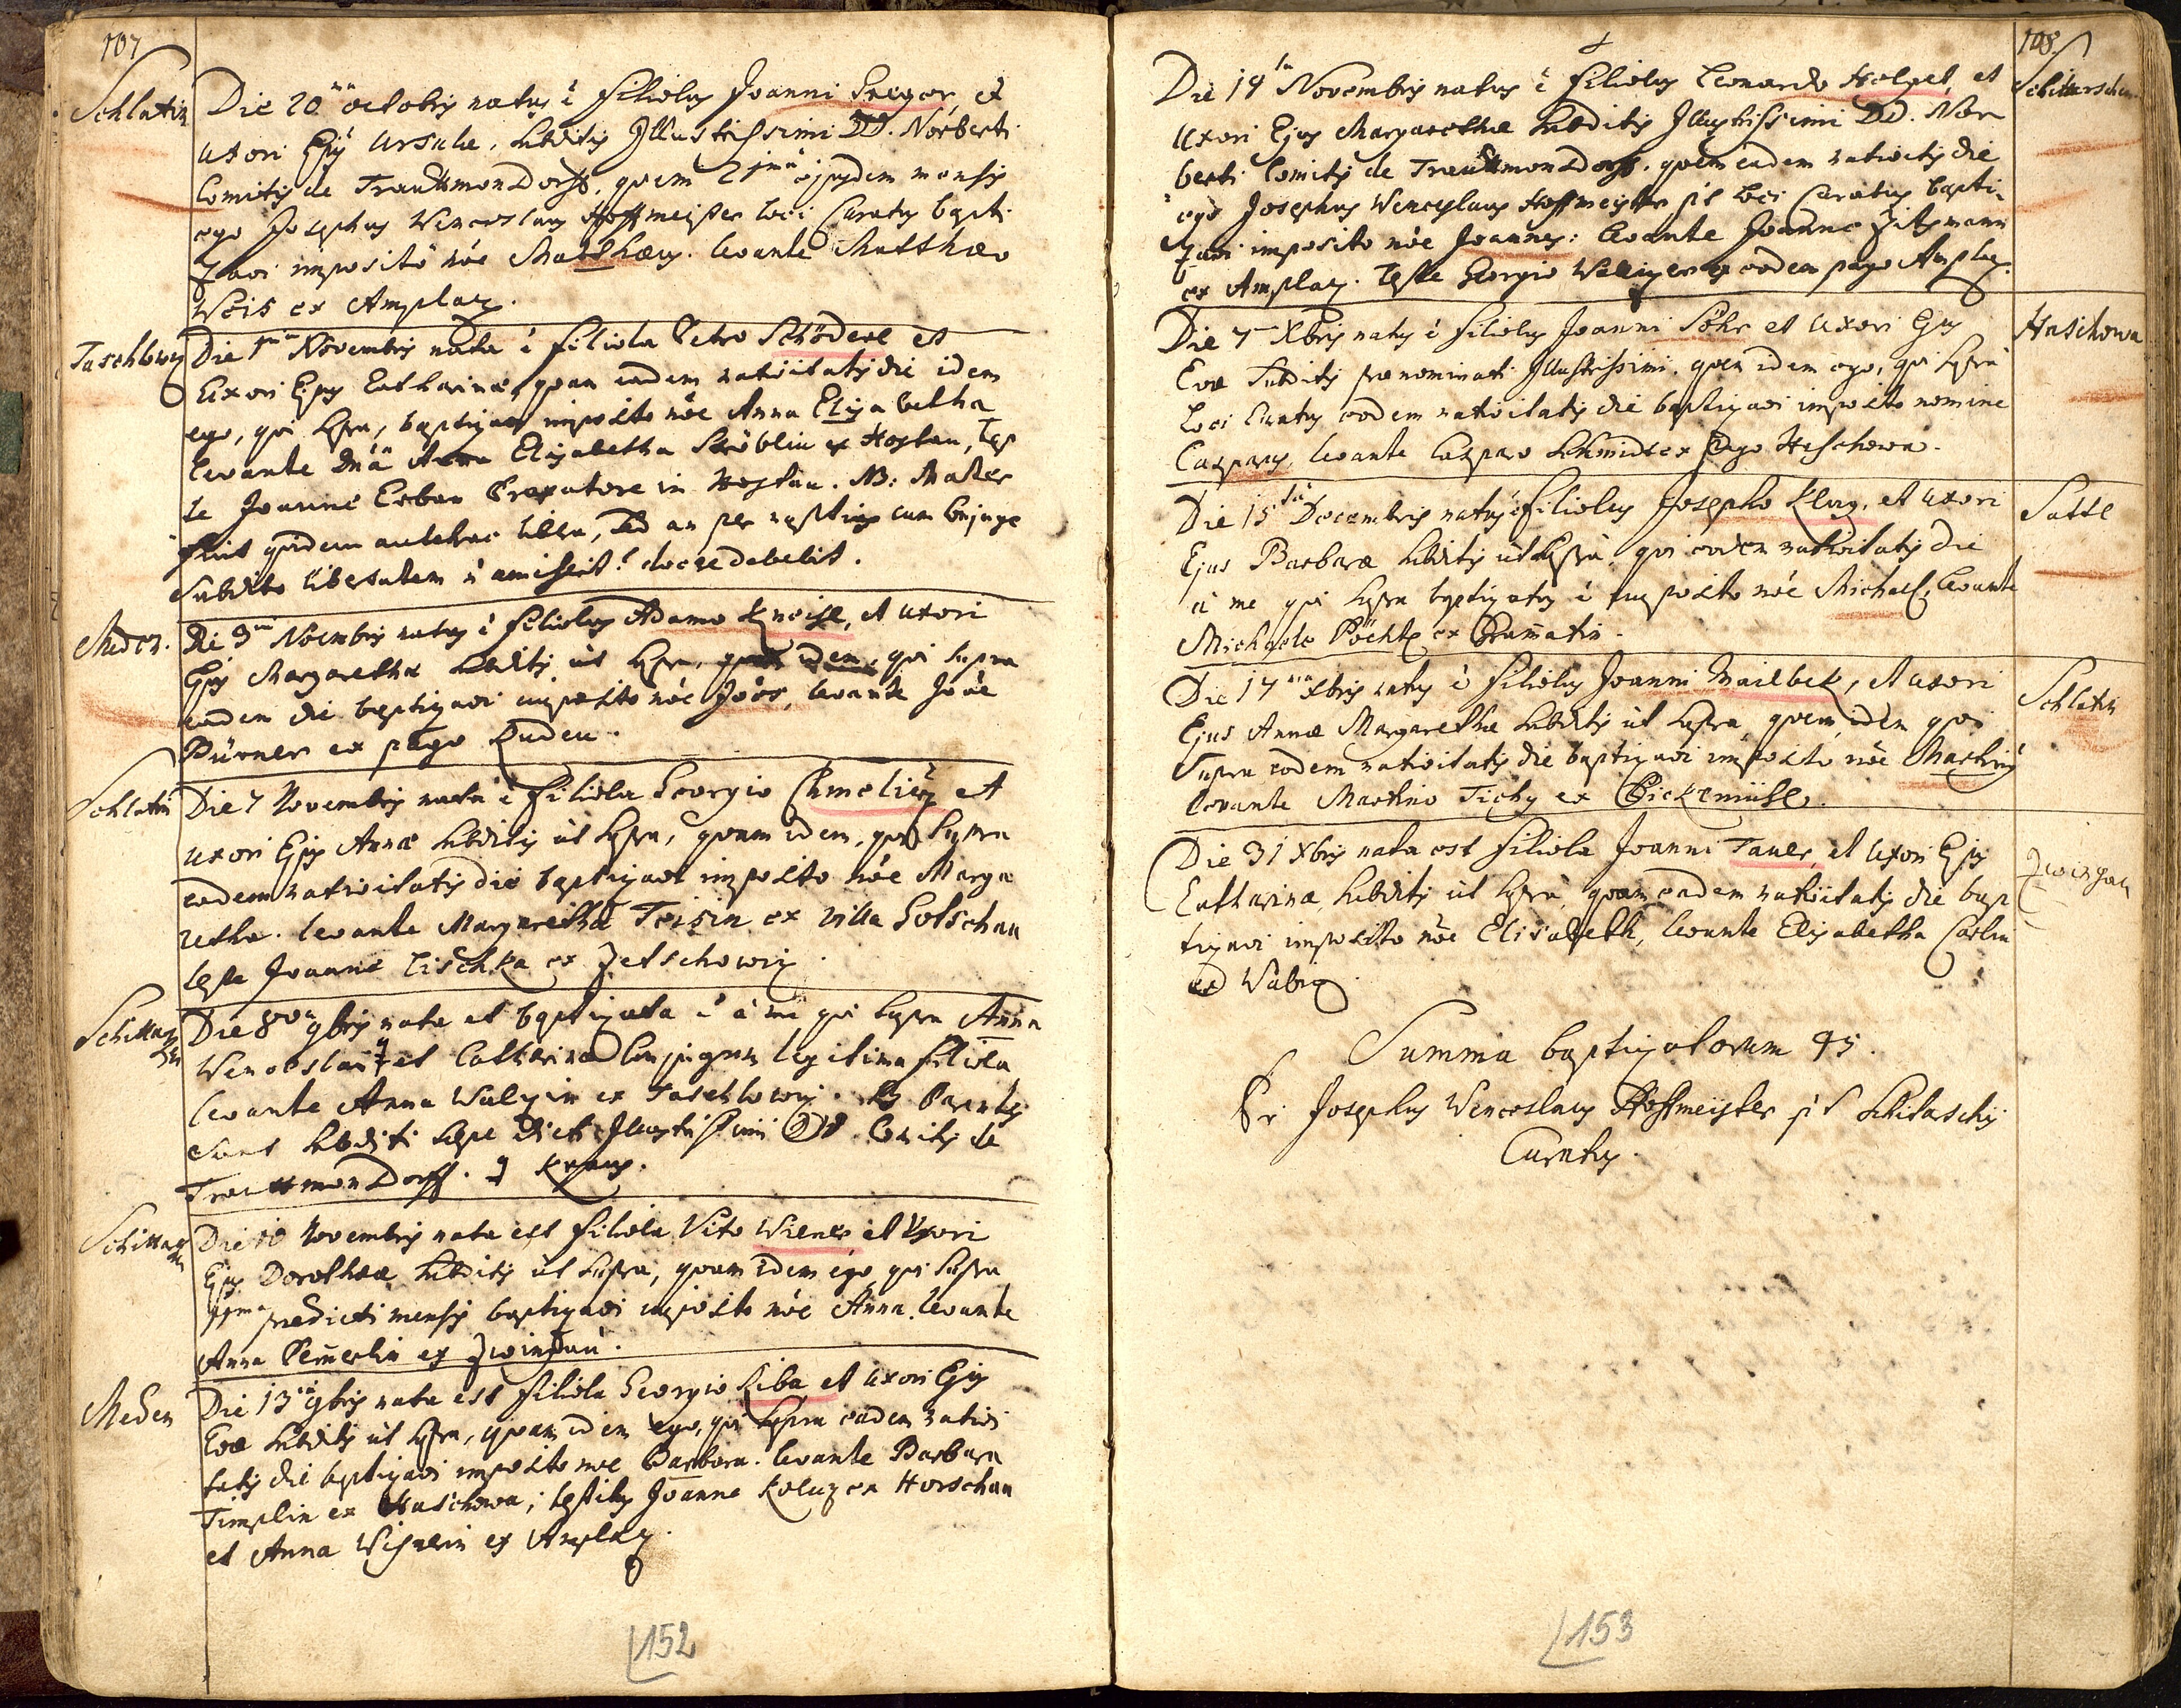 107
Schlatin
Die 20 octobris natus ē filiolus Joanni Gregor, et
uxori Ejus Ursulae, subditis Illustrissimi DD. Norberti
Comitis de Trauttmonsdorff, quem 21 ejusdem mensis
ego Josephus Wenceslaus Hoffmeister loci Curatus bapti-
zavi imposito nōe Matthaeus. levante Matthaeo
Weis ex Amplaz.
Taschlowiz
Die 1 Novembris nata ē filiola Petro Schöderl et
uxori Ejus Catharinae, quam eadem nativitatis die idem
ego, qui supra, baptizavi imposito nōe Anna Elizabetha
levante Dnā Anna Elizabetha Ströblin ex Hostau, tes
te Joanne Erban in Hostau. NB: Mater
fuit quidem antehac libera, sed an per nuptias cum conjuge
subdito libertatem ñ amiserit? docere debebit.
Meden.
Die 3 Noembris natus ē filiolus Adamo Kneisl, et uxori
Ejus Margarethae subditis ut supra, quem idem, qui supra
eadem die baptizavi imposito nōe Joës, levante Joāe
Pürner ex pago Luden.
Schlatin
Die 7 Novembris nata ē filiola Georgio Chmeličz et
uxori Ejus Annae subditis ut supra, quam idem, qui supra
eadem nativitatis die baptizavi imposito nōe Marga
retha. levante Margaretha Teisin ex villa Gotschau
teste Joanne Lischka ex Zetschowiz.
Schittar
Die 8va 9bris nata et baptizata ē à me qui supra Anna
Wenceslai et Catharinae Conjugum legitima filiola
levante Anna Walzin ex Taschlowiz. NB Parentes
sunt subditi saepe dicti Illustrissimi DD. Comitis de
Trauttmonsdorff. Kraus.
Schittar
Die 10 Novembris nata est filiola Vito Wiener et Uxori
Ejus Dorotheae subditis ut supra, quam idem ego qui supra
11ma praedicti mensis baptizavi imposito nōe Anna. levante
Anna Pem̄erlin ex Zwingau.
Meden
Die 13 9bris nata est filiola Georgio Liba et uxori Ejus
Evae subditis ut supra, quam idem ego, qui supra eadem nativi
tatis die baptizavi imposito nōe Barbara. levante Barbara
Timplin ex Haschowa; testibus Joanne Koluz ex Horschau
et Anna Wisnerin ex Amplaz.
152
108
Schittarschen
Die 14 Novembris natus ē filiolus Leonardo Holzel, et
Uxori Ejus Margarethae subditis Illustrissimi DD. Nor
berti Comitis de Trauttmonsdorff. quem eadem nativitatis die
ego Josephus Wenceslaus Hoffmeister p.t. loci Curatus bapti-
zavi imposito nōe Joannes: levante Joanne Zitzmann
ex Amplaz. teste Georgio ex eodem pago Amplaz.
Haschowa
Die 7 Xbris natus ē filiolus Joanni Föhr et uxori Ejus
Evae subditis praenominati Illustrissimi, quem idem ego, qui supra
loci Curatus eodem nativitatis die baptizavi imposito nomine
Casparus, levante Casparo Schmidt ex pago Haschowa.
Sattl
Die 15 Decembris natus ē filiolus Josepho Kluz, et uxori
Ejus Barbarae subditis ut supra, qui eodem nativitatis die
à me qui supra baptizatus ē imposito nōe Michael, levante
Michaele Pöchtl ex Gram̄atin.
Schlatin
Die 17 Xbris natus ē filiolus Joanni Mailbek, et uxori
Ejus Annae Margarethae subditis ut supra, quem idem qui
supra eodem nativitatis die baptizavi imposito nōe Martinus
levante Martino Tichy ex Pickemühl.
Zwingau
Die 31 Xbris nata est filiola Joanni Tauer, et Uxori Ejus
Catharinae, subditis ut supra, quam eadem nativitatis die bap
tizavi imposito nōe Elisabeth, levante Elizabetha Carlin
ex Wabiz.
Summa baptizatorum 45.
Fr: Josephus Wenceslaus Hoffmeister p.t Schitarschij
Curatus.
153